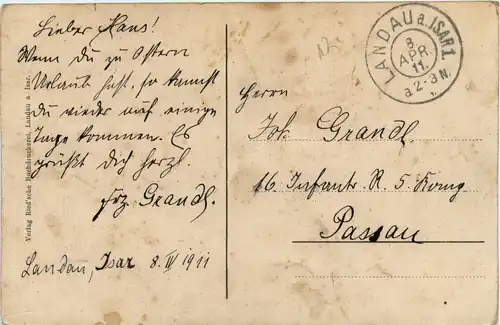 Lieber Hans!
Wenn Du zu Ostern
Urlaub hast, so kannst
Du wieder auf einige
Tage kommen. Es
grüßt Dich herzl.
Frz. Grandl.
Landau, Isar 8. IV 1911
Verlag Ried'sche Buchdruckerei, Landau a. Isar.
LANDAU a. ISAR 1.
8
APR.
11.
a 2-3 N.
Herrn
Joh. Grandl.
16. Infantr. R. 5. Komp
Passau